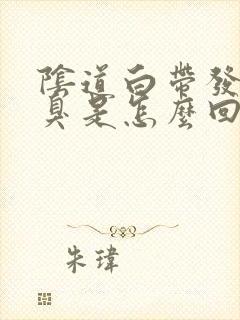 陰道白帶發
臭是怎麼回
朱瑋